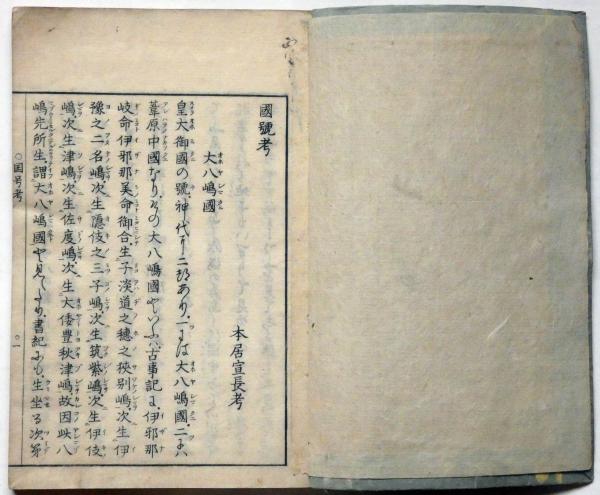 國號考
本居宣長考
大八嶋國
皇大御國の號、神代より二あり、一には大八嶋國、二には
葦原中國なり、その大八嶋國といふは、古事記に、伊邪那
岐命伊邪那美命御合、生子淡道之穗之狹別嶋、次生伊
豫之二名嶋、次生隱伎之三子嶋、次生筑紫嶋、次生伊伎
嶋、次生津嶋、次生佐度嶋、次生大倭豐秋津嶋、故因此八
嶋先所生、謂大八嶋國と見えたり、書紀にも、生坐る次第
○国号考
○一